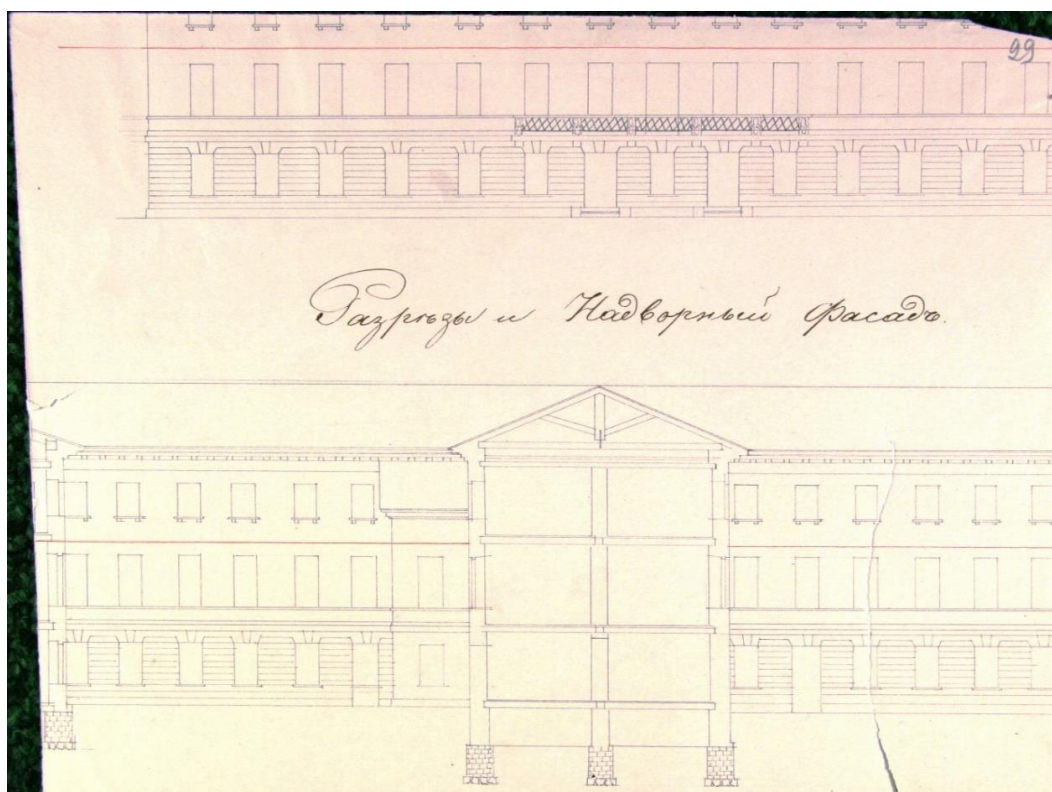 99
Разрѣзы и Надворный фасадъ.